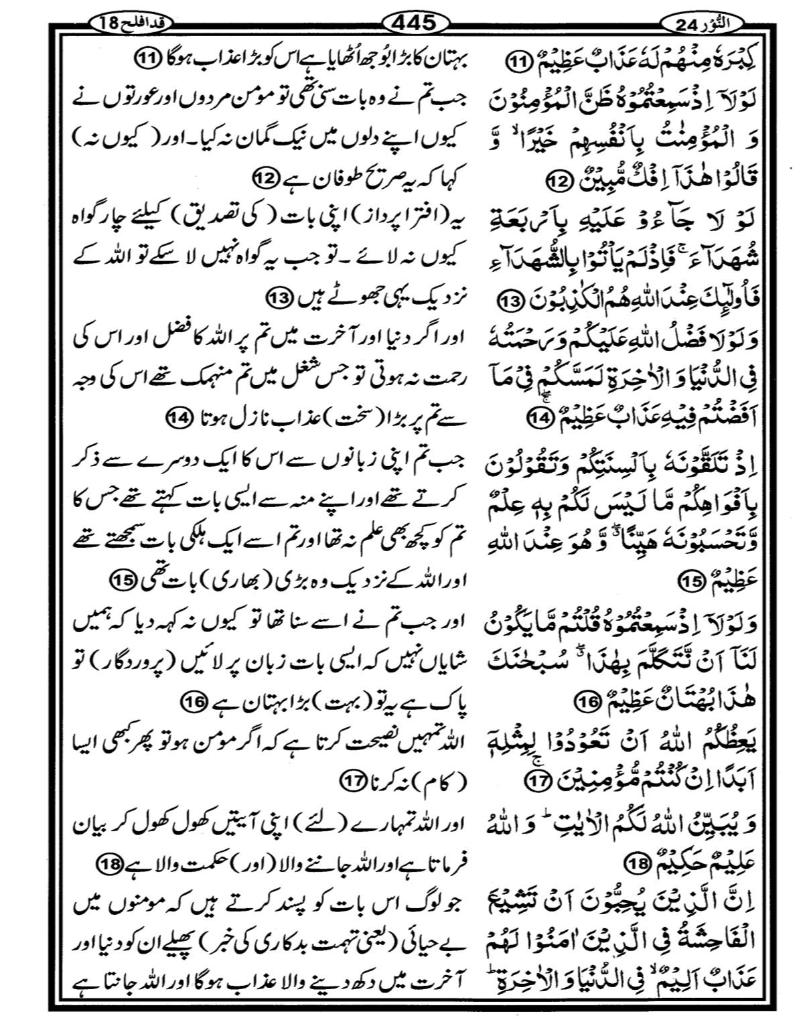 النُّوْر 24
445
قد افلح 18
كِبْرَهٗ مِنْهُمْ لَهٗ عَذَابٌ عَظِيْمٌ ⑪
لَوْلَاۤ اِذْ سَمِعْتُمُوْهُ ظَنَّ الْمُؤْمِنُوْنَ
وَ الْمُؤْمِنٰتُ بِاَنْفُسِهِمْ خَيْرًا ۙ وَّ
قَالُوْا هٰذَاۤ اِفْكٌ مُّبِيْنٌ ⑫
لَوْ لَا جَآءُوْ عَلَيْهِ بِاَرْبَعَةِ
شُهَدَآءَ ۚ فَاِذْ لَمْ يَاْتُوْا بِالشُّهَدَآءِ
فَاُولٰٓئِكَ عِنْدَ اللّٰهِ هُمُ الْكٰذِبُوْنَ ⑬
وَ لَوْلَا فَضْلُ اللّٰهِ عَلَيْكُمْ وَ رَحْمَتُهٗ
فِى الدُّنْيَا وَ الْاٰخِرَةِ لَمَسَّكُمْ فِيْ مَاۤ
اَفَضْتُمْ فِيْهِ عَذَابٌ عَظِيْمٌ ۚ ⑭
اِذْ تَلَقَّوْنَهٗ بِاَلْسِنَتِكُمْ وَتَقُوْلُوْنَ
بِاَفْوَاهِكُمْ مَّا لَيْسَ لَكُمْ بِهٖ عِلْمٌ
وَّ تَحْسَبُوْنَهٗ هَيِّنًا ۖ وَّ هُوَ عِنْدَ اللّٰهِ
عَظِيْمٌ ⑮
وَ لَوْلَاۤ اِذْ سَمِعْتُمُوْهُ قُلْتُمْ مَّا يَكُوْنُ
لَنَاۤ اَنْ نَّتَكَلَّمَ بِهٰذَا ۖ سُبْحٰنَكَ
هٰذَا بُهْتَانٌ عَظِيْمٌ ⑯
يَعِظُكُمُ اللّٰهُ اَنْ تَعُوْدُوْا لِمِثْلِهٖۤ
اَبَدًا اِنْ كُنْتُمْ مُّؤْمِنِيْنَ ۚ ⑰
وَ يُبَيِّنُ اللّٰهُ لَكُمُ الْاٰيٰتِ ؕ وَ اللّٰهُ
عَلِيْمٌ حَكِيْمٌ ⑱
اِنَّ الَّذِيْنَ يُحِبُّوْنَ اَنْ تَشِيْعَ
الْفَاحِشَةُ فِى الَّذِيْنَ اٰمَنُوْا لَهُمْ
عَذَابٌ اَلِيْمٌ ۙ فِى الدُّنْيَا وَ الْاٰخِرَةِ ؕ
بہتان کا بڑا بوجھ اُٹھایا ہے اس کو بڑا عذاب ہوگا ⑪
جب تم نے وہ بات سنی تھی تو مومن مردوں اور عورتوں نے
کیوں اپنے دلوں میں نیک گمان نہ کیا۔ اور (کیوں نہ)
کہا کہ یہ صریح طوفان ہے ⑫
یہ (افترا پرداز) اپنی بات (کی تصدیق) کیلئے چار گواہ
کیوں نہ لائے۔ تو جب یہ گواہ نہیں لا سکے تو اللہ کے
نزدیک یہی جھوٹے ہیں ⑬
اور اگر دنیا اور آخرت میں تم پر اللہ کا فضل اور اس کی
رحمت نہ ہوتی تو جس شغل میں تم منہمک تھے اس کی وجہ
سے تم پر بڑا (سخت) عذاب نازل ہوتا ⑭
جب تم اپنی زبانوں سے اس کا ایک دوسرے سے ذکر
کرتے تھے اور اپنے منہ سے ایسی بات کہتے تھے جس کا
تم کو کچھ بھی علم نہ تھا اور تم اسے ایک ہلکی بات سمجھتے تھے
اور اللہ کے نزدیک وہ بڑی (بھاری) بات تھی ⑮
اور جب تم نے اسے سنا تھا تو کیوں نہ کہہ دیا کہ ہمیں
شایاں نہیں کہ ایسی بات زبان پر لائیں (پروردگار) تو
پاک ہے یہ تو (بہت) بڑا بہتان ہے ⑯
اللہ تمہیں نصیحت کرتا ہے کہ اگر مومن ہو تو پھر کبھی ایسا
(کام) نہ کرنا ⑰
اور اللہ تمہارے (لئے) اپنی آیتیں کھول کھول کر بیان
فرماتا ہے اور اللہ جاننے والا (اور) حکمت والا ہے ⑱
جو لوگ اس بات کو پسند کرتے ہیں کہ مومنوں میں
بے حیائی (یعنی تہمت بدکاری کی خبر) پھیلے ان کو دنیا اور
آخرت میں دکھ دینے والا عذاب ہوگا اور اللہ جانتا ہے